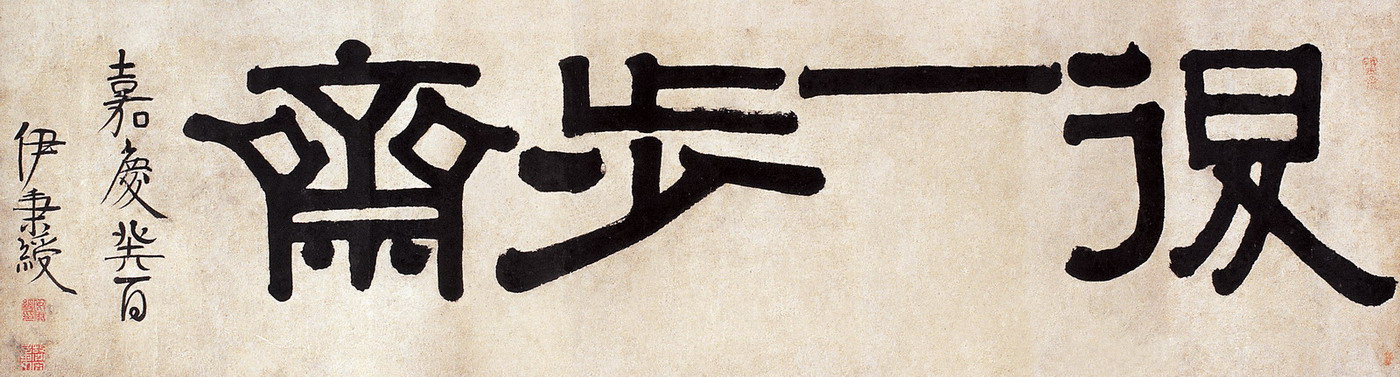 退一步齋
嘉慶癸酉
伊秉綬